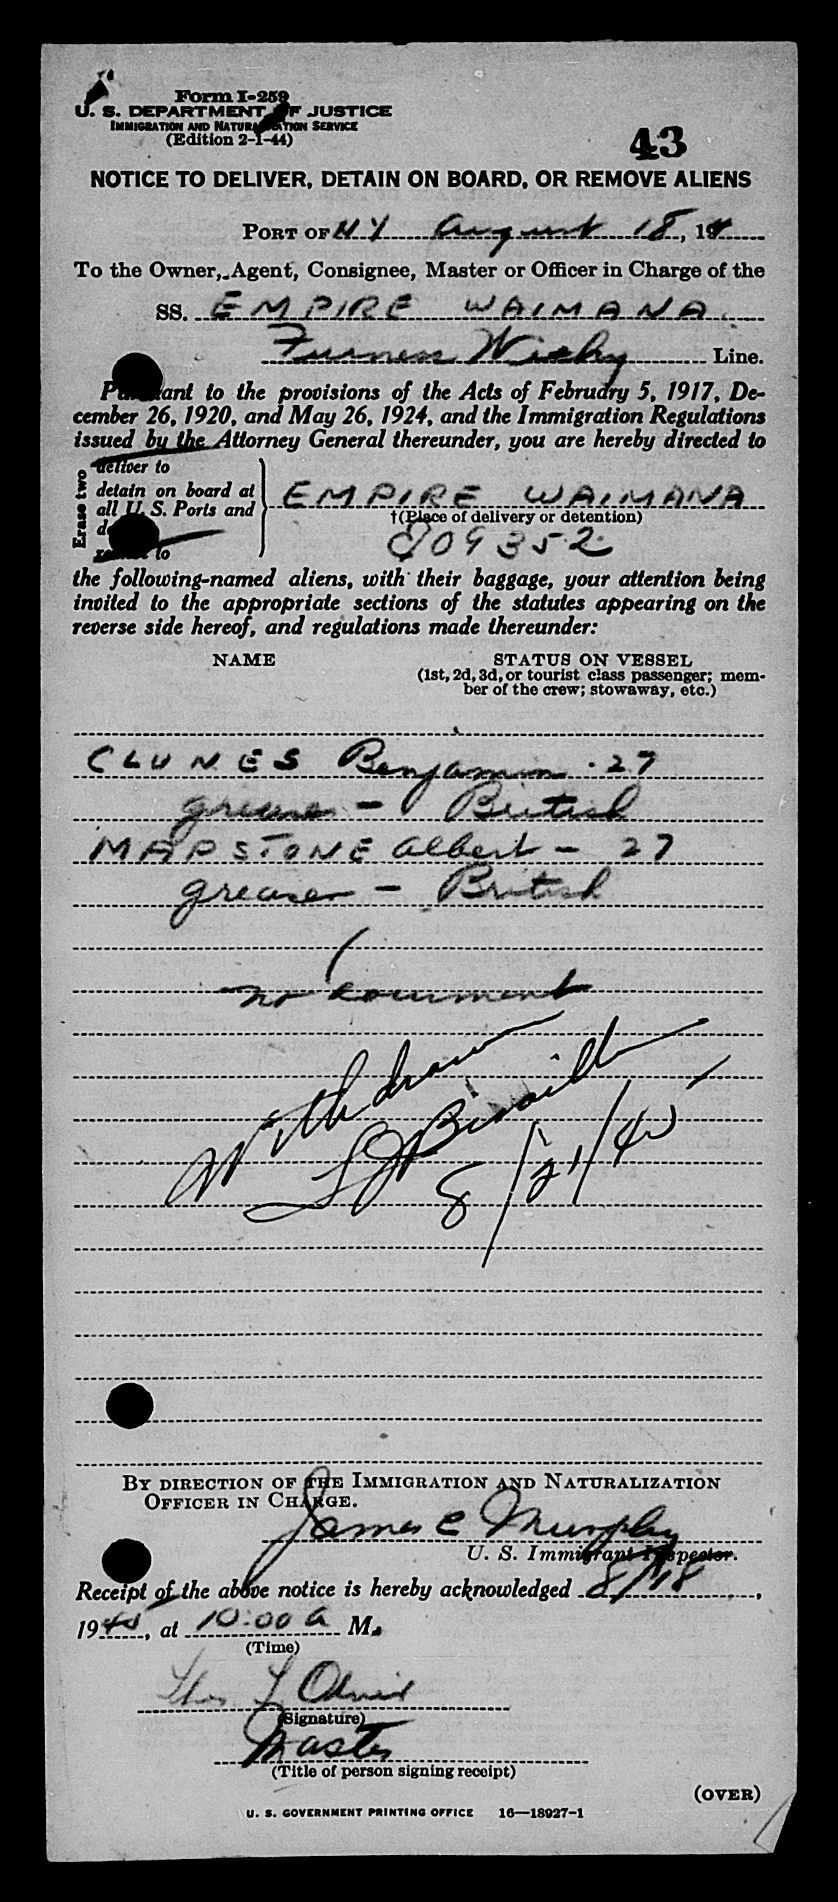 Form I-259
U. S. DEPARTMENT OF JUSTICE
IMMIGRATION AND NATURALIZATION SERVICE
(Edition 2-1-44)
43
NOTICE TO DELIVER, DETAIN ON BOARD, OR REMOVE ALIENS
PORT OF N Y August 18, 19
To the Owner, Agent, Consignee, Master or Officer in Charge of the
SS. EMPIRE WAIMANA
Furness Withy Line.
Pursuant to the provisions of the Acts of February 5, 1917, De-
cember 26, 1920, and May 26, 1924, and the Immigration Regulations
issued by the Attorney General thereunder, you are hereby directed to
Erase two
deliver to
detain on board at
all U. S. Ports and
remove to
EMPIRE WAIMANA
†(Place of delivery or detention)
809352
the following-named aliens, with their baggage, your attention being
invited to the appropriate sections of the statutes appearing on the
reverse side hereof, and regulations made thereunder:
NAME STATUS ON VESSEL
(1st, 2d, 3d, or tourist class passenger; mem-
ber of the crew; stowaway, etc.)
CLUNES Benjamin - 27
greaser - British
MAPSTONE Albert - 27
greaser - British
no document
Withdrawn
8/21/45
BY DIRECTION OF THE IMMIGRATION AND NATURALIZATION
OFFICER IN CHARGE.
James C Murphy
U. S. Immigrant Inspector.
Receipt of the above notice is hereby acknowledged 8/18,
1945, at 10:00 A M.
(Time)
(Signature)
Master
(Title of person signing receipt)
(OVER)
U. S. GOVERNMENT PRINTING OFFICE 16—18927-1